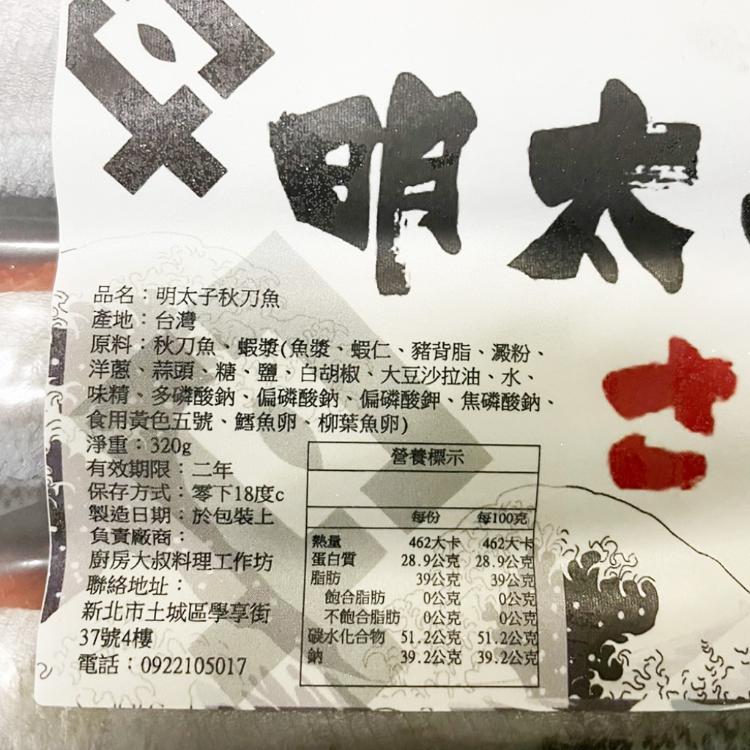 明太
品名：明太子秋刀魚
產地：台灣
原料：秋刀魚、蝦漿(魚漿、蝦仁、豬背脂、澱粉、
洋蔥、蒜頭、糖、鹽、白胡椒、大豆沙拉油、水、
味精、多磷酸鈉、偏磷酸鈉、偏磷酸鉀、焦磷酸鈉、
食用黃色五號、鱈魚卵、柳葉魚卵)
淨重：320g
有效期限：二年
保存方式：零下18度c
製造日期：於包裝上
負責廠商：
廚房大叔料理工作坊
聯絡地址：
新北市土城區學享街
37號4樓
電話：0922105017
營養標示
每份 每100克
熱量 462大卡 462大卡
蛋白質 28.9公克 28.9公克
脂肪 39公克 39公克
飽合脂肪 0公克 0公克
不飽合脂肪 0公克 0公克
碳水化合物 51.2公克 51.2公克
鈉 39.2公克 39.2公克